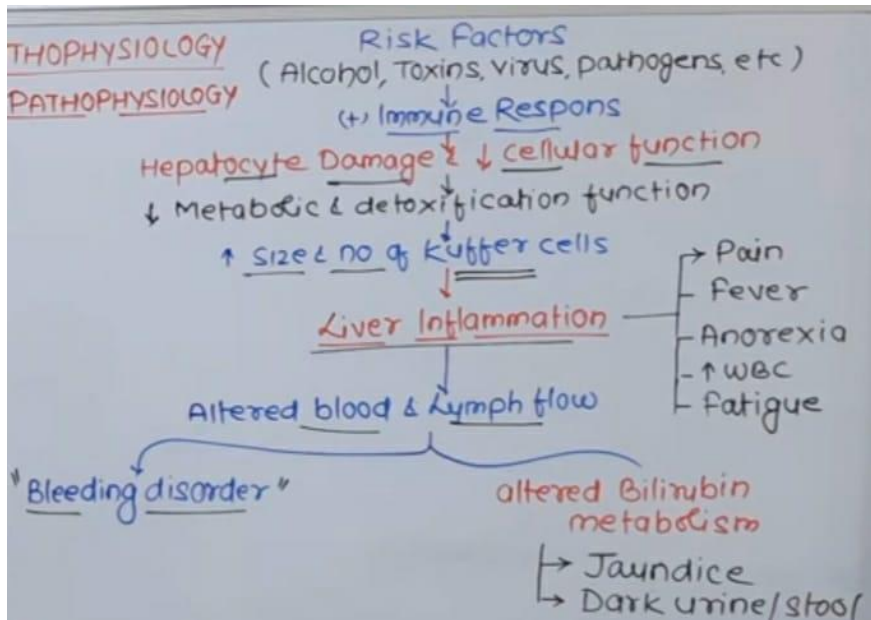 THOPHYSIOLOGY
PATHOPHYSIOLOGY
Risk Factors
(Alcohol, Toxins, virus, pathogens, etc)
↓
(+) Immune Respons
↓
Hepatocyte Damage & ↓ cellular function
↓
↓ Metabolic & detoxification function
↓
↑ Size & no of Kuffer cells
↓
Liver Inflammation
→ Pain
- Fever
- Anorexia
- ↑ WBC
- Fatigue
↓
Altered blood & Lymph flow
"Bleeding disorder"
altered Bilirubin
metabolism
→ Jaundice
→ Dark urine/stool